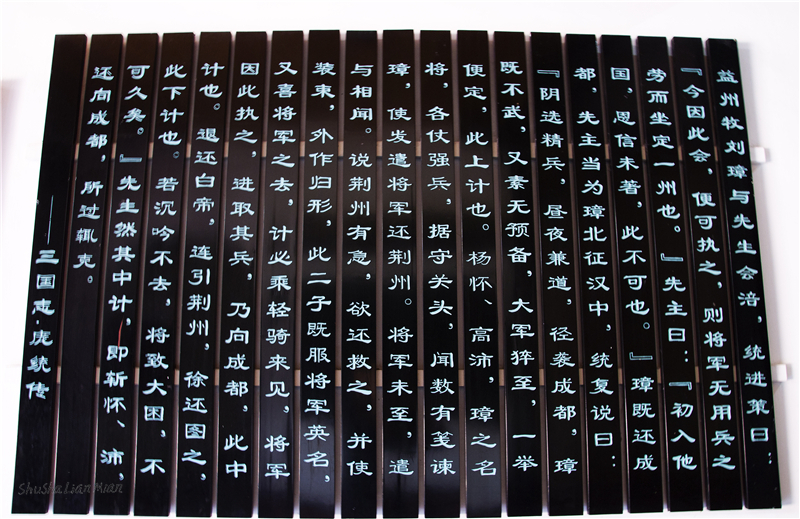 益州牧刘璋与先主会涪，统进策曰：
『今因此会，便可执之，则将军无用兵之
劳而坐定一州也。』先主曰：『初入他
国，恩信未著，此不可也。』璋既还成
都，先主当为璋北征汉中，统复说曰：
『阴选精兵，昼夜兼道，径袭成都，璋
既不武，又素无预备，大军猝至，一举
便定，此上计也。杨怀、高沛，璋之名
将，各仗强兵，据守关头，闻数有笺谏
璋，使发遣将军还荆州。将军未至，遣
与相闻。说荆州有急，欲还救之，并使
装束，外作归形，此二子既服将军英名，
又喜将军之去，计必乘轻骑来见，将军
因此执之，进取其兵，乃向成都，此中
计也。退还白帝，连引荆州，徐还图之，
此下计也。若沉吟不去，将致大困，不
可久矣。』先主然其中计，即斩怀、沛，
还向成都，所过辄克。
——三国志·庞统传
ShuShaLianMian